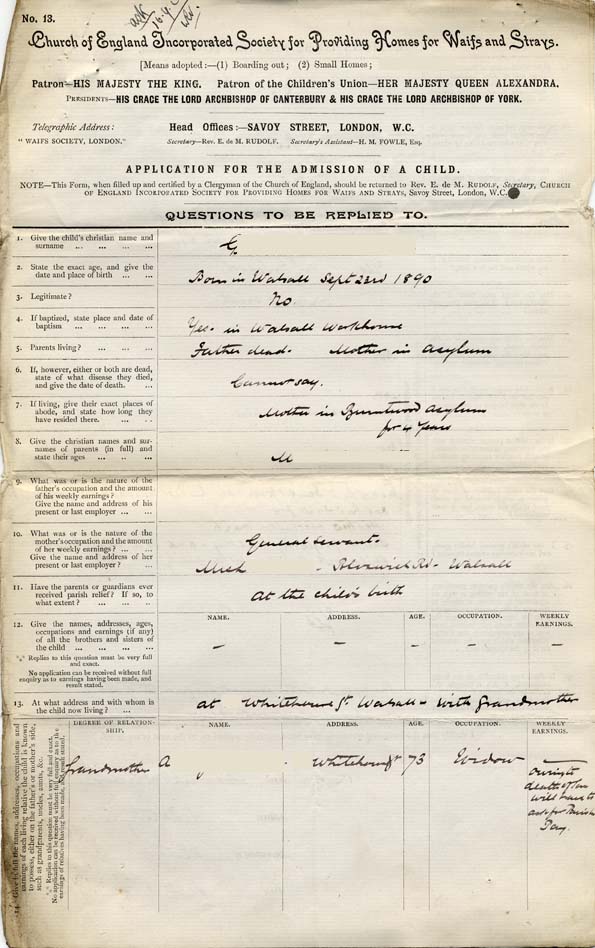 No. 13.
ask
16.4.
Church of England Incorporated Society for Providing Homes for Waifs and Strays.
[Means adopted:—(1) Boarding out; (2) Small Homes;
Patron—HIS MAJESTY THE KING. Patron of the Children's Union—HER MAJESTY QUEEN ALEXANDRA.
Presidents—HIS GRACE THE LORD ARCHBISHOP OF CANTERBURY & HIS GRACE THE LORD ARCHBISHOP OF YORK.
Telegraphic Address: Head Offices:—SAVOY STREET, LONDON, W.C.
"WAIFS SOCIETY, LONDON." Secretary—Rev. E. de M. RUDOLF. Secretary's Assistant—H. M. FOWLE, Esq.
APPLICATION FOR THE ADMISSION OF A CHILD.
NOTE—This Form, when filled up and certified by a Clergyman of the Church of England, should be returned to Rev. E. de M. Rudolf, Secretary, Church
of England Incorporated Society for Providing Homes for Waifs and Strays, Savoy Street, London, W.C.
QUESTIONS TO BE REPLIED TO.
1. Give the child's christian name and
surname ... ... ... ...
G
2. State the exact age, and give the
date and place of birth ... ...
Born in Walsall Sept 23rd 1890
3. Legitimate?
No.
4. If baptized, state place and date of
baptism ... ... ... ...
Yes. in Walsall Workhouse
5. Parents living? ... ... ...
Father dead. Mother in asylum
6. If, however, either or both are dead,
state of what disease they died,
and give the date of death. ...
Cannot say.
7. If living, give their exact places of
abode, and state how long they
have resided there. ... ...
Mother in Burntwood Asylum
for 4 years
8. Give the christian names and sur-
names of parents (in full) and
state their ages ... ... ...
M
9. What was or is the nature of the
father's occupation and the amount
of his weekly earnings?
Give the name and address of his
present or last employer ... ...
10. What was or is the nature of the
mother's occupation and the amount
of her weekly earnings? ... ...
Give the name and address of her
present or last employer? ...
General servant.
- Bloxwich Rd - Walsall
11. Have the parents or guardians ever
received parish relief? If so, to
what extent? ... ... ...
At the child's birth
12. Give the names, addresses, ages,
occupations and earnings (if any)
of all the brothers and sisters of
the child ... ... ... ...
*** Replies to this question must be very full
and exact.
No application can be received without full
enquiry as to earnings having been made, and
result stated.
NAME. ADDRESS. AGE. OCCUPATION. WEEKLY EARNINGS.
- - - - -
13. At what address and with whom is
the child now living? ... ...
At Whitehouse St Walsall - with Grandmother
14. Give in full the names, addresses, occupations and
earnings of each living relative the child is known
to possess, either on the father's or mother's side,
such as grandparents, uncles, aunts, &c.
*** Replies to this question must be very full and exact.
No application can be received without full enquiry as to the
earnings of relatives having been made, and result stated.
DEGREE OF RELATION-
SHIP. NAME. ADDRESS. AGE. OCCUPATION. WEEKLY
EARNINGS.
Grandmother A Whitehouse St 73 Widow
owing to
death of son
will have to
ask for Parish
Pay.